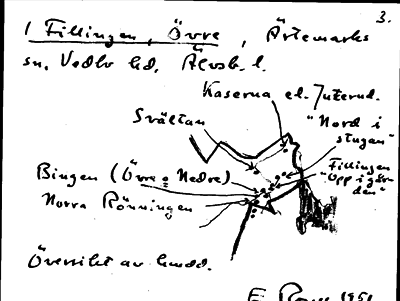 3.
1 Fillingen, Övre, Ärtemarks
sn, Vedbo hd, Älvsb. l.
Kaserna el. Juterud.
Svältan
"Nord i
stugan"
Bingen (Övre o Nedre)
Fillingen
"Opp i går-
den"
Norra Rönningen
Översikt av
1951